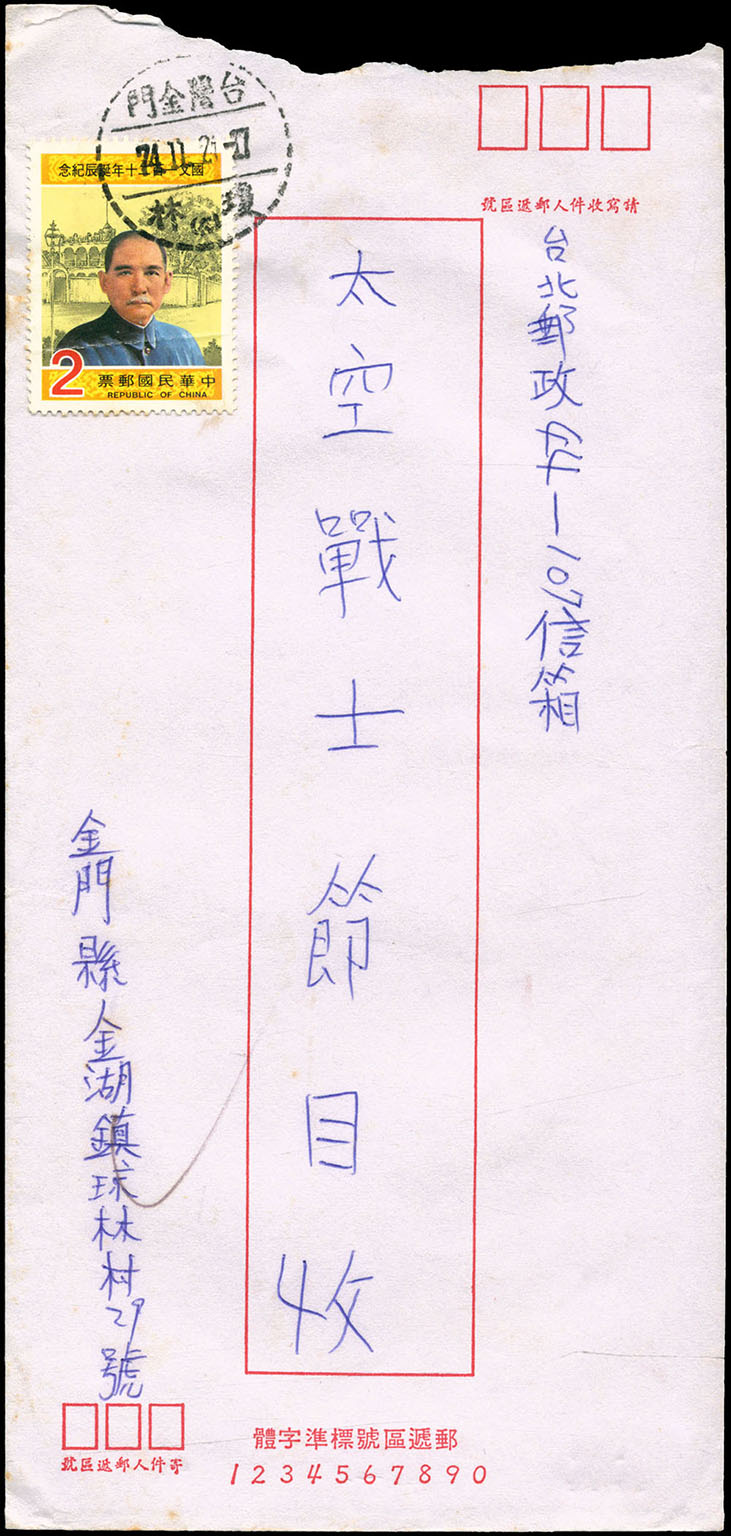 台灣金門
瓊林
國父一百二十年誕辰紀念
2
中華民國郵票
REPUBLIC OF CHINA
請寫收件人郵遞區號
台北郵政信箱
太空戰士節目收
金門縣金湖鎮琼林村29號
寄件人郵遞區號
郵遞區號標準字體
1 2 3 4 5 6 7 8 9 0